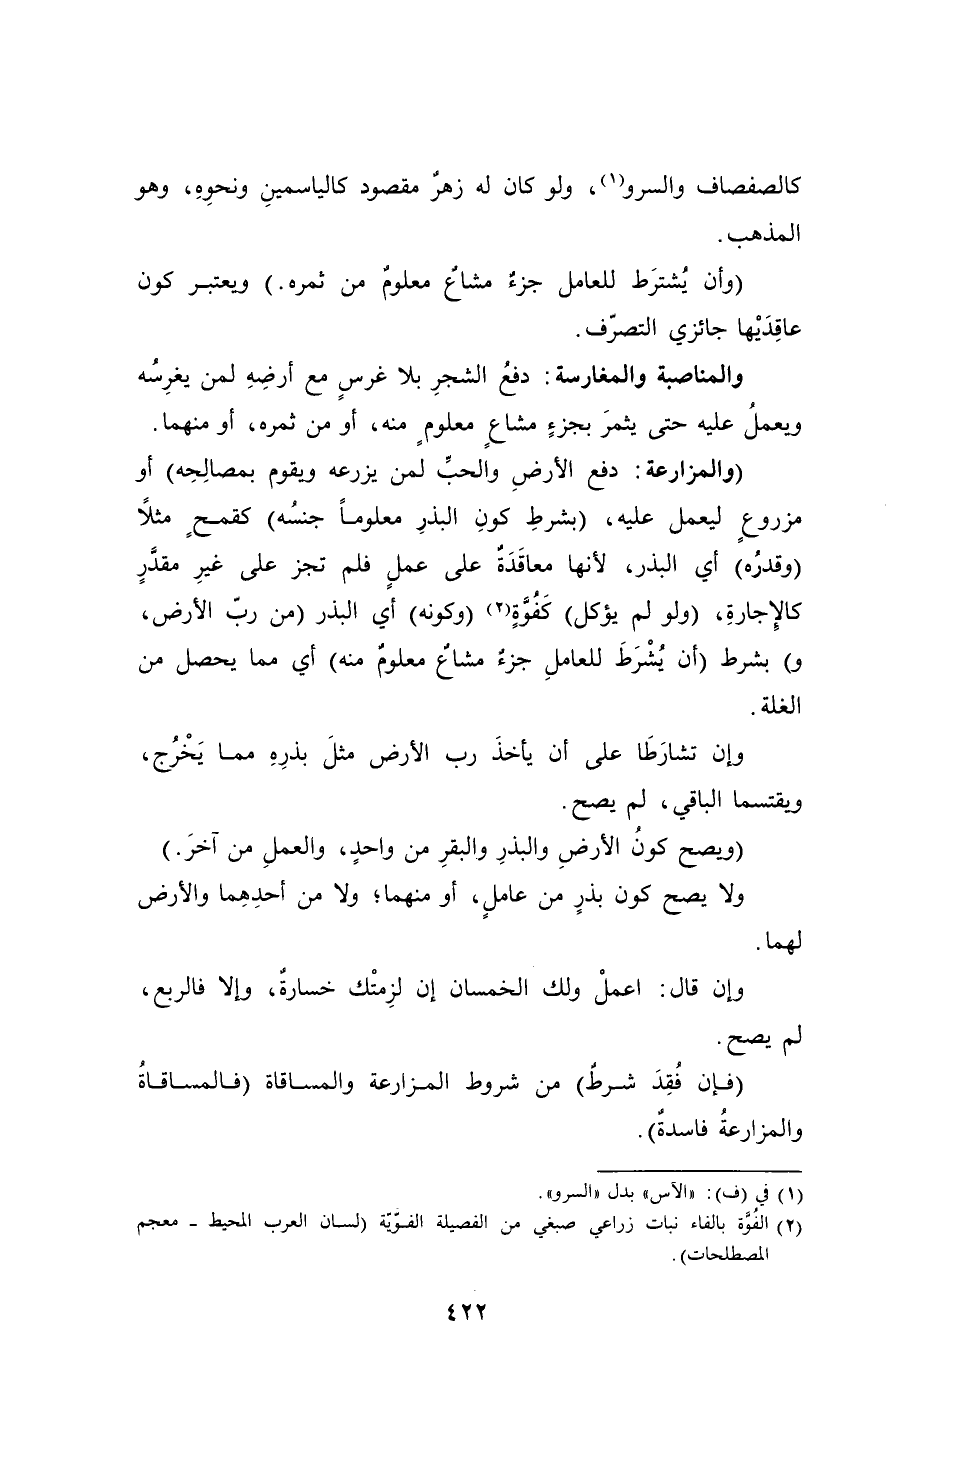 كالصفصاف والسرو(١)، ولو كان له زهرٌ مقصود كالياسمينِ ونحوِهِ، وهو
المذهب.
(وأن يُشترَط للعامل جزءٌ مشاعٌ معلومٌ من ثمره.) ويعتبر كون
عاقِدَيْها جائزي التصرّف.
والمناصبة والمغارسة: دفعُ الشجرِ بلا غرسٍ مع أرضِهِ لمن يغرِسُه
ويعملُ عليه حتى يثمرَ بجزءٍ مشاعٍ معلومٍ منه، أو من ثمره، أو منهما.
(والمزارعة: دفع الأرضِ والحبِّ لمن يزرعه ويقوم بمصالِحِه) أو
مزروعٍ ليعمل عليه، (بشرطِ كونِ البذرِ معلوماً جنسُه) كقمحٍ مثلًا
(وقدرُه) أي البذر، لأنها معاقَدَةٌ على عملٍ فلم تجز على غيرِ مقدَّرٍ
كالإجارةِ، (ولو لم يؤكل) كَفُوَّةٍ(٢) (وكونه) أي البذر (من ربّ الأرض،
و) بشرط (أن يُشْرَطَ للعاملِ جزءٌ مشاعٌ معلومٌ منه) أي مما يحصل من
الغلة.
وإن تشارَطَا على أن يأخذَ رب الأرض مثلَ بذرِهِ مما يَخْرُج،
ويقتسما الباقي، لم يصح.
(ويصح كونُ الأرضِ والبذرِ والبقرِ من واحدٍ، والعملِ من آخرَ.)
ولا يصح كون بذرٍ من عاملٍ، أو منهما؛ ولا من أحدِهِما والأرض
لهما.
وإن قال: اعملْ ولك الخمسان إن لزِمتْك خسارةٌ، وإلا فالربع،
لم يصح.
(فإن فُقِدَ شرطٌ) من شروط المزارعة والمساقاة (فالمساقاةُ
والمزارعةُ فاسدةٌ).
(١) في (ف): «الآس» بدل «السرو».
(٢) الفُوَّة بالفاء نبات زراعي صبغي من الفصيلة الفوّيّة (لسان العرب المحيط - معجم
المصطلحات).
٤٢٢